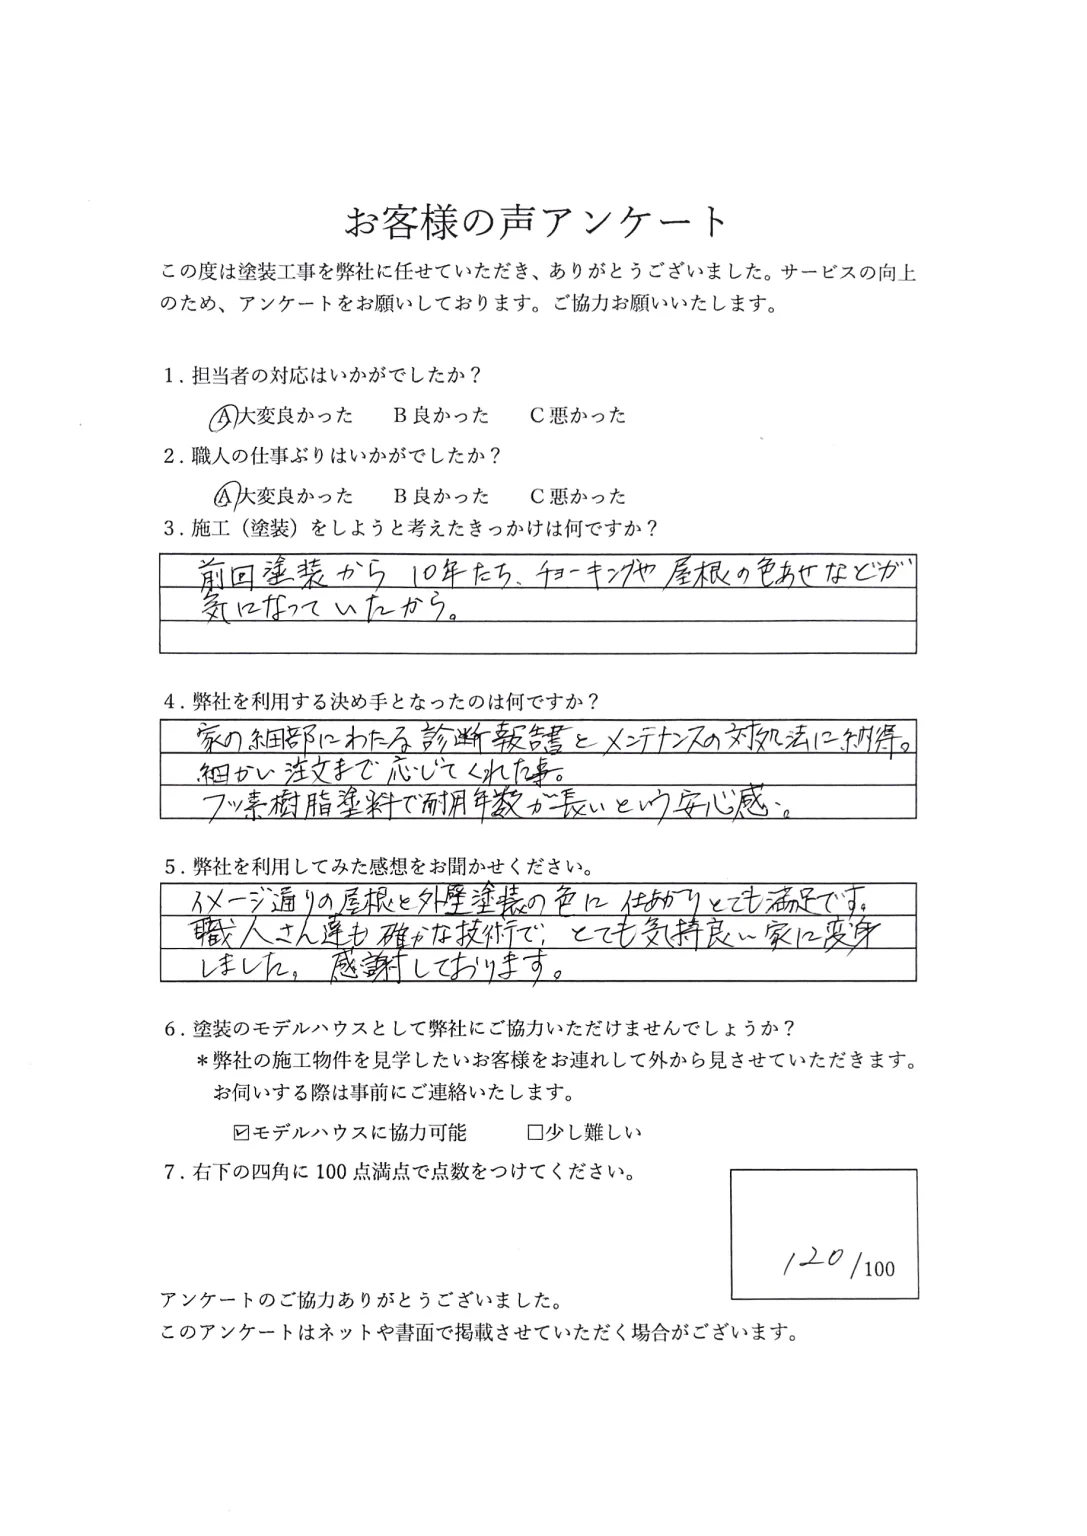 お客様の声アンケート
この度は塗装工事を弊社に任せていただき、ありがとうございました。サービスの向上
のため、アンケートをお願いしております。ご協力お願いいたします。
1．担当者の対応はいかがでしたか？
A大変良かった　B 良かった　C 悪かった
2．職人の仕事ぶりはいかがでしたか？
A大変良かった　B 良かった　C 悪かった
3．施工（塗装）をしようと考えたきっかけは何ですか？
前回塗装から 10年たち、チョーキングや 屋根の色あせなどが
気になっていたから。
4．弊社を利用する決め手となったのは何ですか？
家の細部にわたる診断報告書とメンテナンスの対処法に納得。
細かい注文まで応じてくれた事。
フッ素樹脂塗料で耐用年数が長いという安心感。
5．弊社を利用してみた感想をお聞かせください。
イメージ通りの屋根と外壁塗装の色に仕あがりとても満足です。
職人さん達も確かな技術で、とても気持良い家に変身
しました。感謝しております。
6．塗装のモデルハウスとして弊社にご協力いただけませんでしょうか？
＊弊社の施工物件を見学したいお客様をお連れして外から見させていただきます。
お伺いする際は事前にご連絡いたします。
☑モデルハウスに協力可能　□少し難しい
7．右下の四角に 100 点満点で点数をつけてください。
120/100
アンケートのご協力ありがとうございました。
このアンケートはネットや書面で掲載させていただく場合がございます。